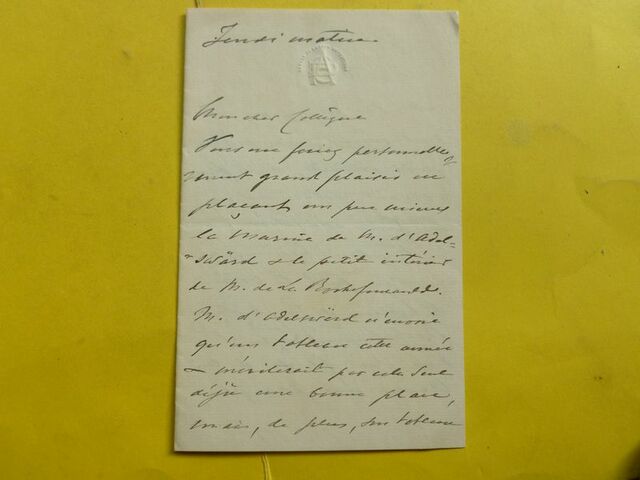 Jeudi matin
Mon cher Collègue
Vous me feriez personnelle-
ment grand plaisir en
plaçant un peu mieux
la marine de M. d'Adel-
swärd & le petit intérieur
de M. de La Rochefoucauld.
M. d'Adelswärd n'envoie
qu'un tableau cette année
& mériterait par cela seul
déjà une bonne place,
mais, de plus, son tableau